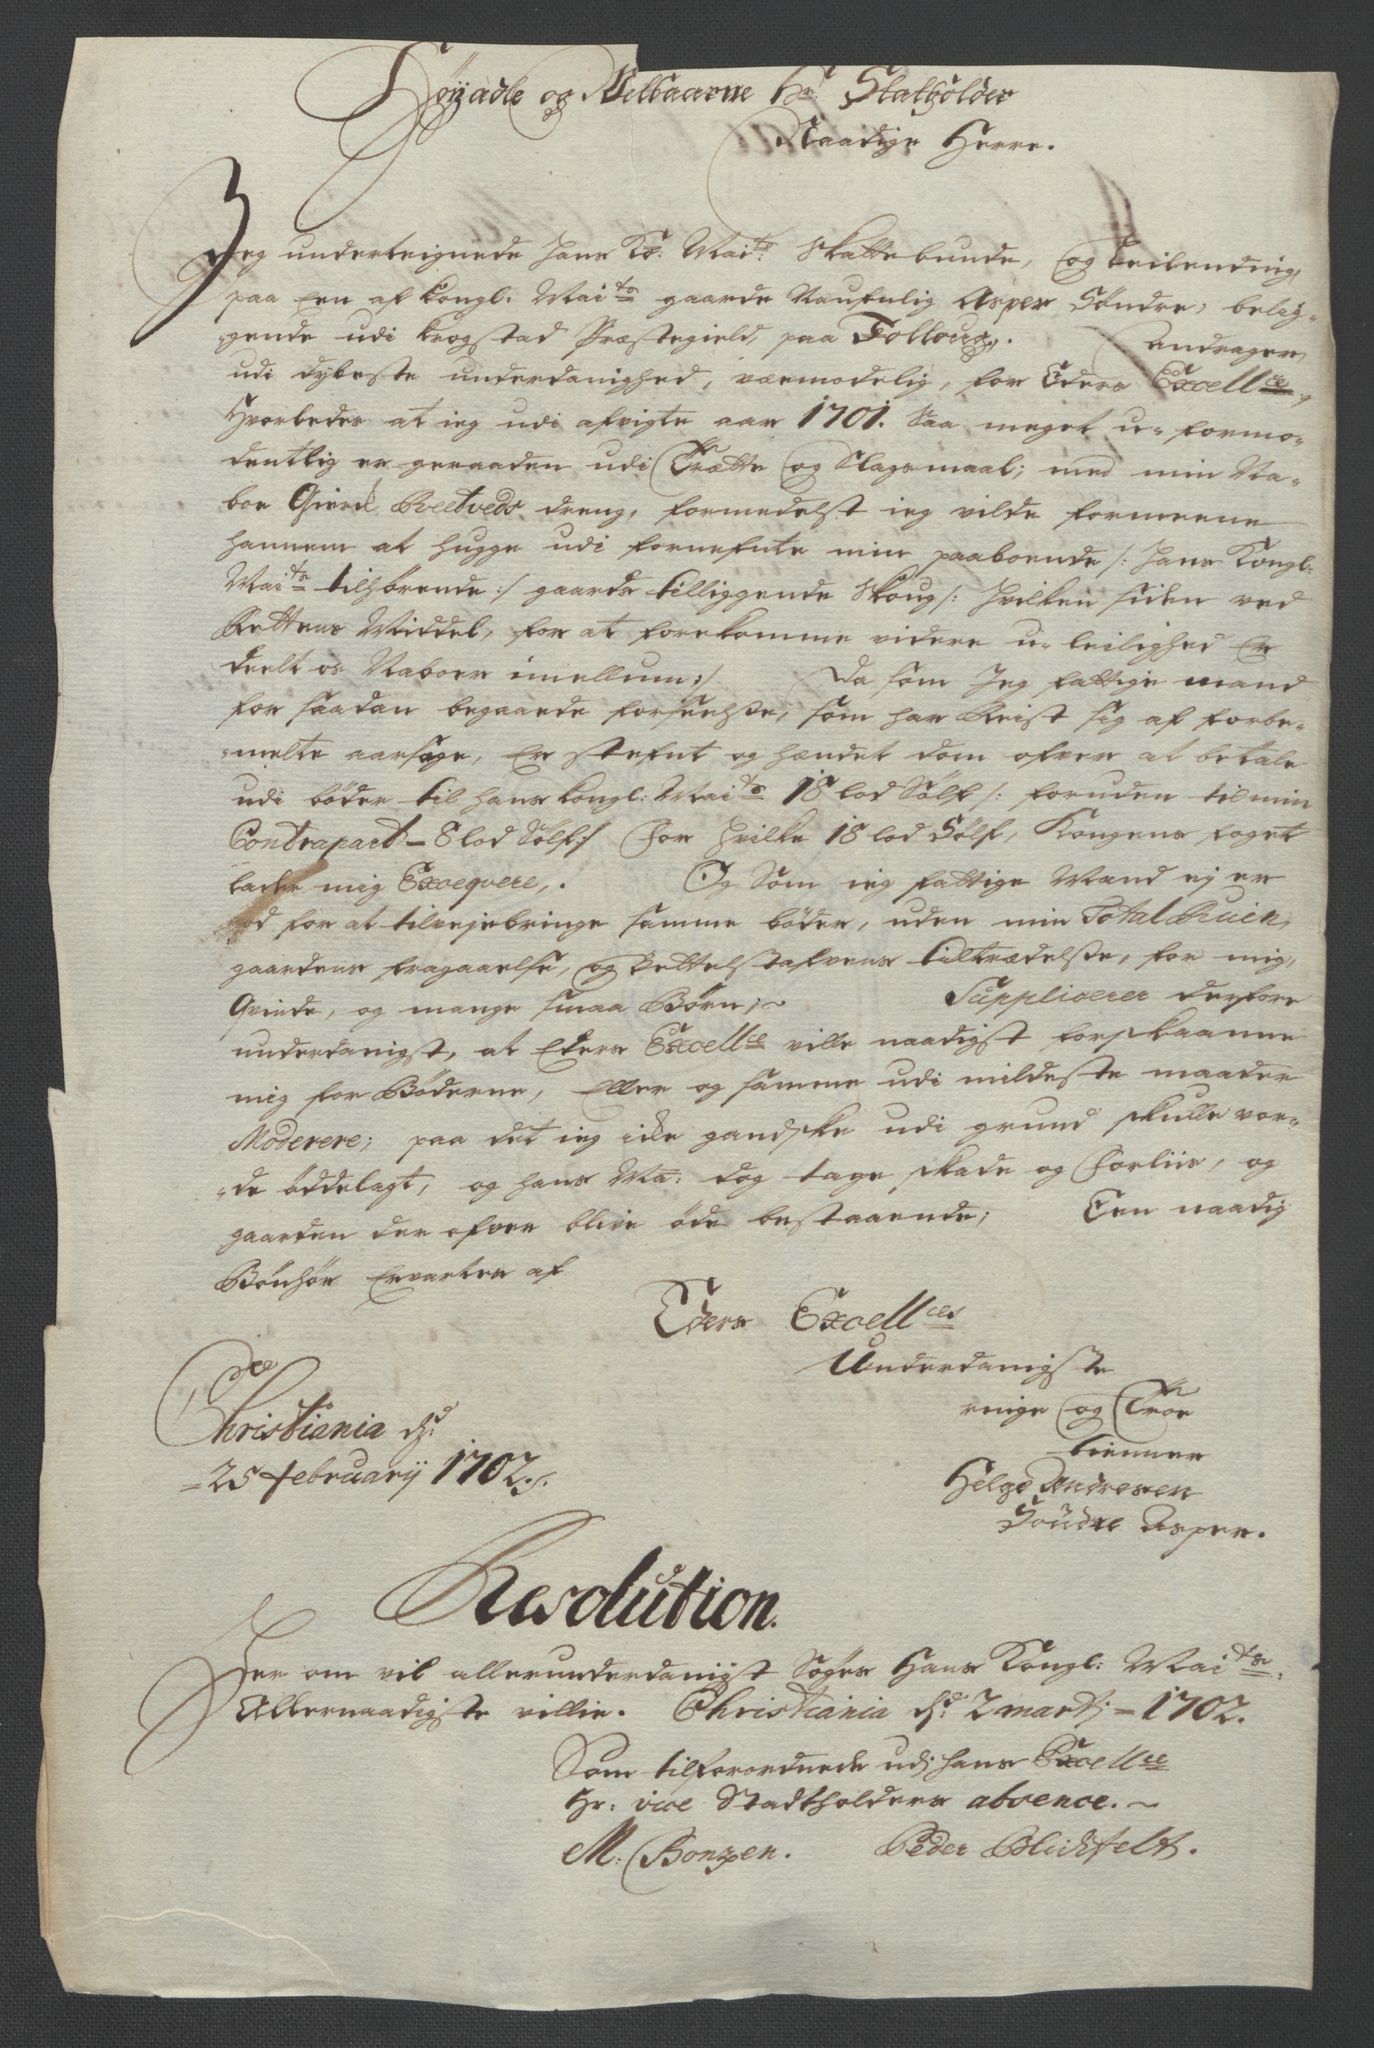 Høÿædle og Velbaarne Hr: Statholder
Naadige Herre.
Jeg underteignede Hans Ko: Maits: Skatte bunde, og leilending,
paa Een af Kongl: Maits gaarde Naufnlig Asper Söndre, belig-
gende udi Krogstad Præstegield, paa Folloug,. andrager
udi dybeste underdanighed, værmodelig, for Eders Excellce,
Hvorledes at ieg udi afvigte aar 1701. saa meget u-formo-
dentlig er geraaden udi Trætte og Slagsmaal; med min Na-
boe Giord Reetveds dreng, formedelst ieg vilde formeene
hannem at hugge udi fornefnte min paaboende /: Hans Kongl:
Maits tilhörende :/ gaards tilliggende Skoug /: hvilken siden ved
Rettens Middel, for at forekomme videre u-leilighed Er
deelt os Naboer imellum :/ Da som Jeg fattige mand
for saadan begaaede forseelse, som har Reist sig af forbe-
melte aarsage, Er stefnt og hændet dom ofver at betale
udi böder til hans kongl: Maits 18 lod Sölf /: foruden til min
Contrapart - 8 lod Sölf :/ for hvilke 18 lod Sölf, Kongens foget
lader mig Exeqvere,. Og Som ieg fattige Mand ej er
god for at tilvejebringe samme böder, uden min Total Ruin,
gaardens fragaaelse, og bettelstafvens tiltrædelse, for mig,
Qvinde, og mange smaa Börn;~ Supplicerer derfore
underdanigst, at Eders Excellce ville naadigst forskaanne
mig for Böderne, Eller og samme udi mildeste maader
Moderere; paa det ieg icke gandske udi grund skulle vor-
de öddelagt, og hans Ma: dog tage skade og forliis, og
gaarden der ofver blive öde bestaaende; Een naadig
Bönhör Ervarter af
Eders Excellces
Underdanigste
ringe og Troe
tienner
Helge Andresen
Söndre Asper.
Christiania dh:
- 25 februarij 1702./.
Resolution.
Her om vil allerunderdanigst Söges Hans Kongl: Maits:
Allernaadigste villie. Christiania dh: 2 martj - 1702.
Som tilforordnede udj hans Excellce
Hr: vice Stadtholders absence.~
M: Bonzen. Peder Blichfeldt.